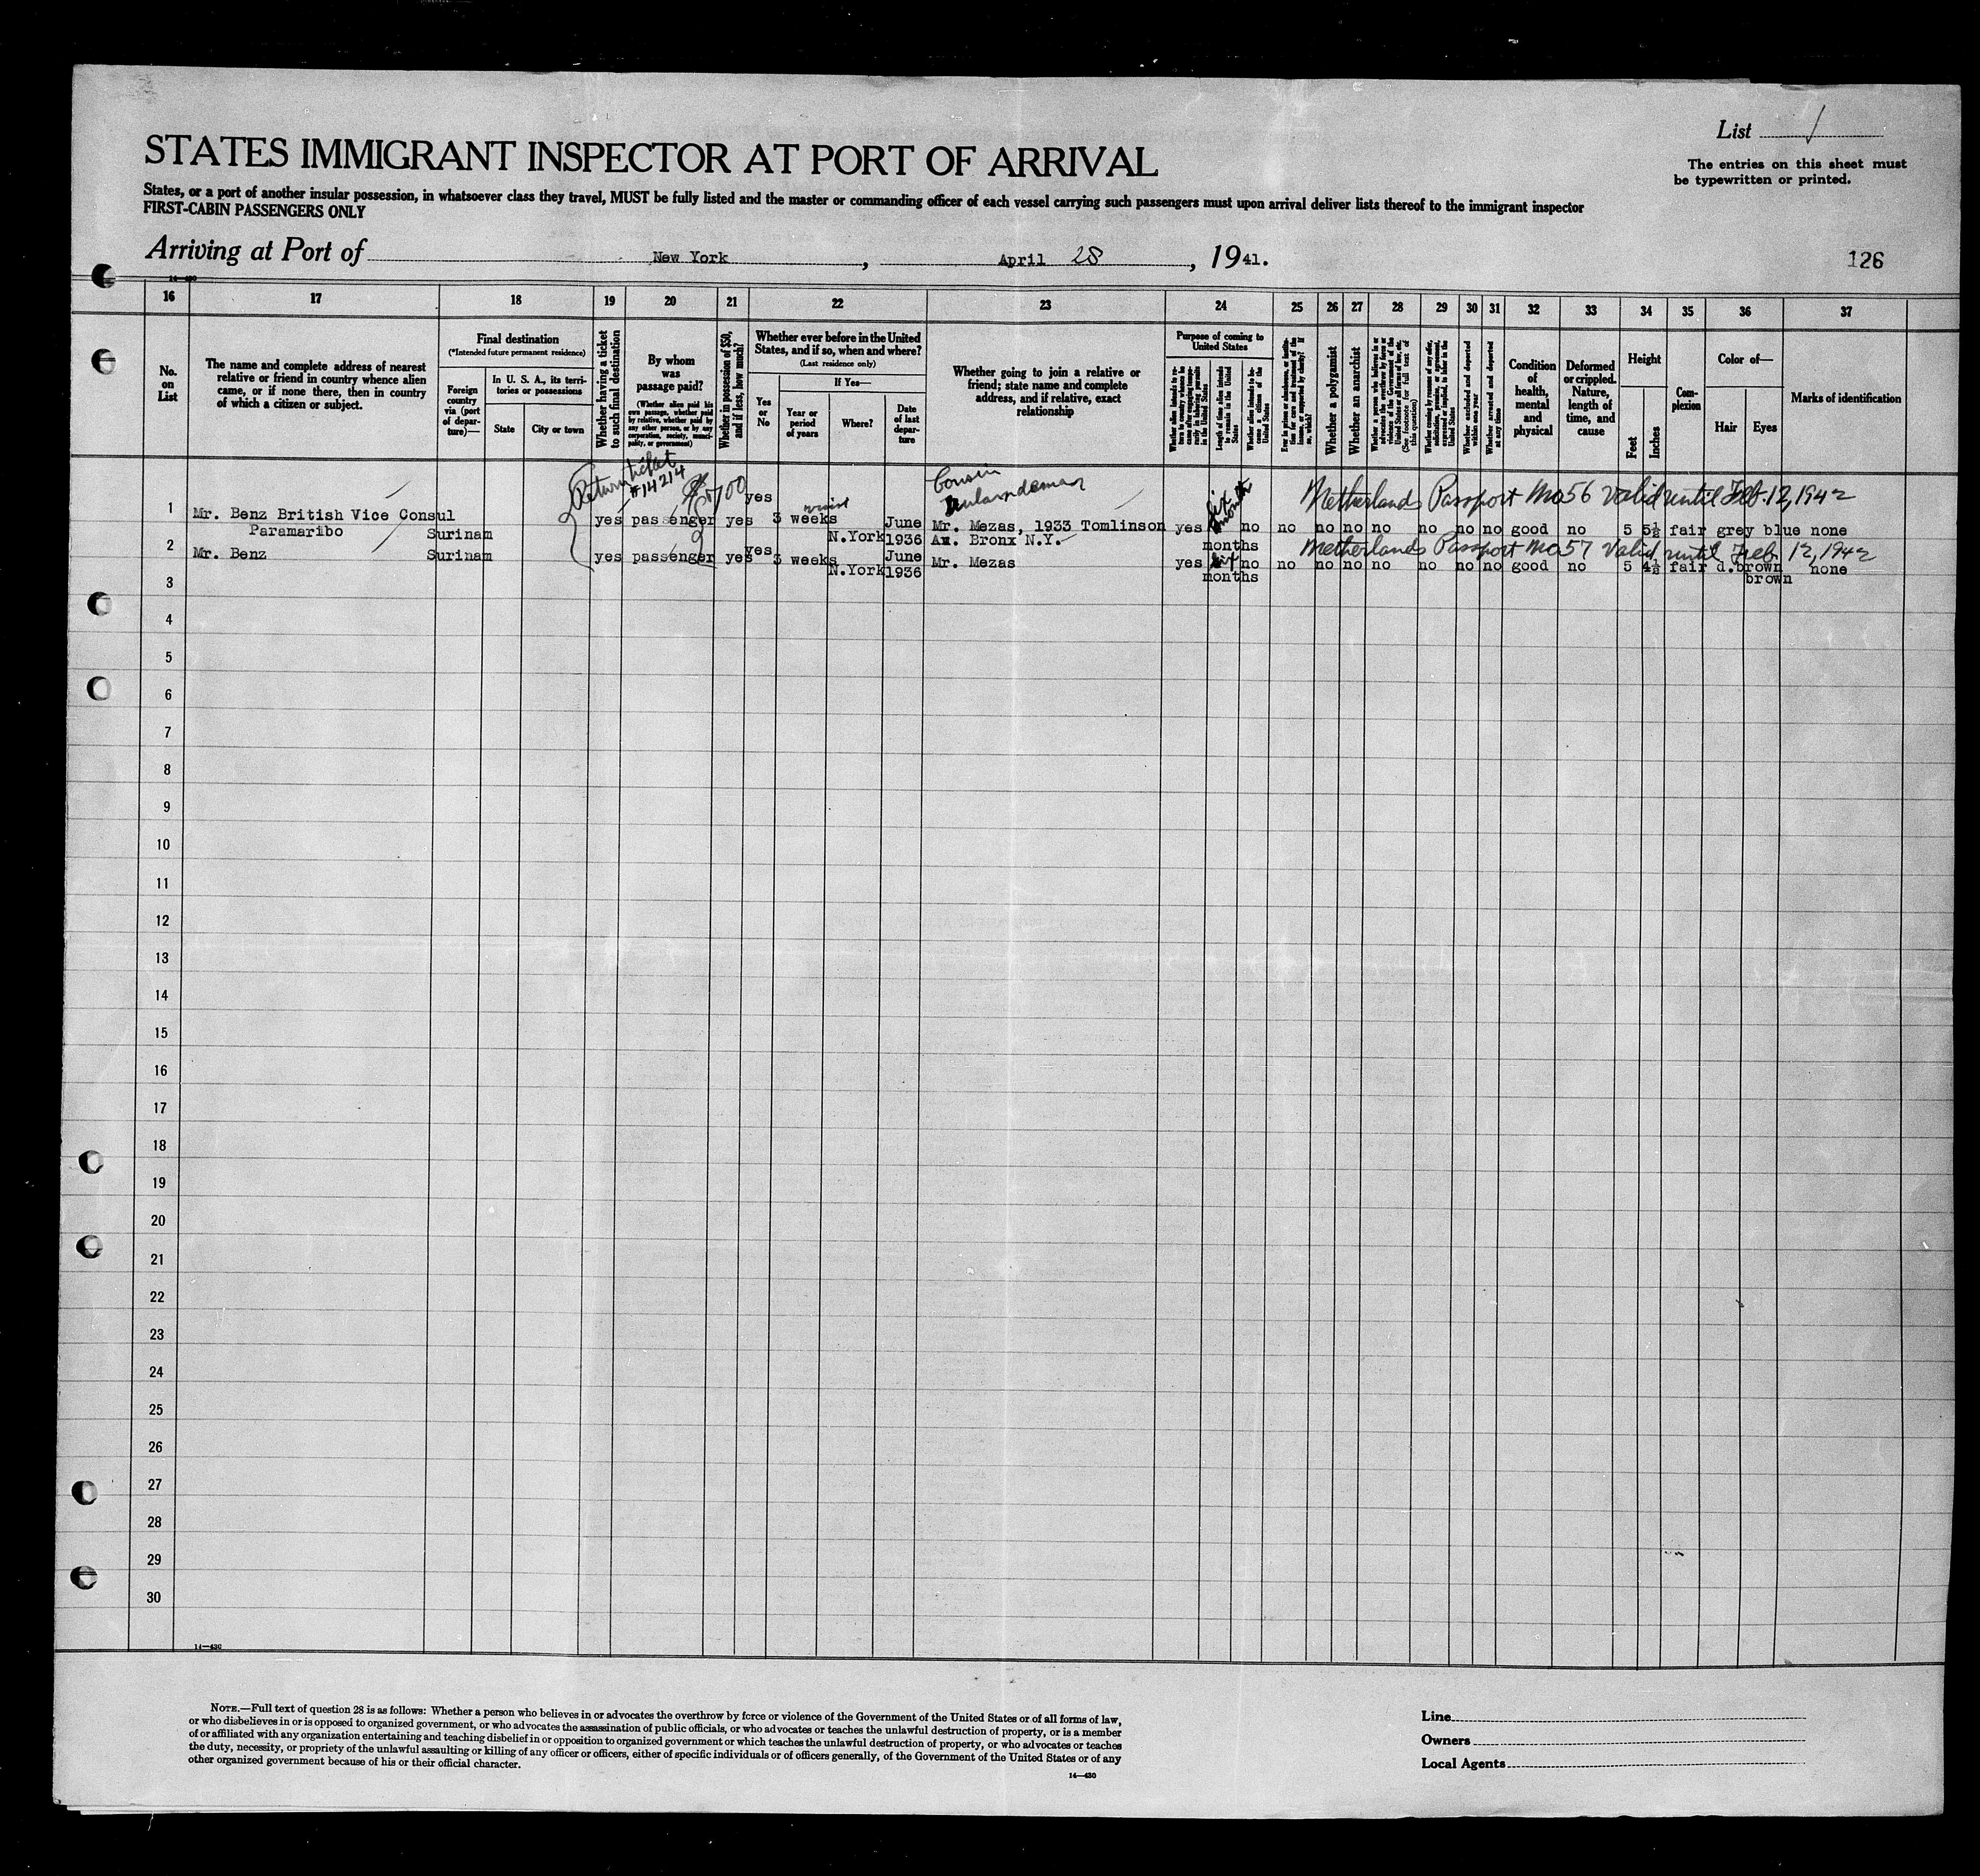 List /
STATES IMMIGRANT INSPECTOR AT PORT OF ARRIVAL
The entries on this sheet must
be typewritten or printed.
States, or a port of another insular possession, in whatsoever class they travel, MUST be fully listed and the master or commanding officer of each vessel carrying such passengers must upon arrival deliver lists thereof to the immigrant inspector
FIRST-CABIN PASSENGERS ONLY
Arriving at Port of New York, April 28, 1941.
126
14—430
16 17 18 19 20 21 22 23 24 25 26 27 28 29 30 31 32 33 34 35 36 37
No.
on
List
The name and complete address of nearest
relative or friend in country whence alien
came, or if none there, then in country
of which a citizen or subject.
Final destination
(*Intended future permanent residence)
Foreign
country
via (port
of depar-
ture)—
In U. S. A., its terri-
tories or possessions
State
City or town
Whether having a ticket
to such final destination
By whom
was
passage paid?
(Whether alien paid his
own passage, whether paid
by relative, whether paid by
any other person, or by any
corporation, society, munici-
pality, or government)
Whether in possession of $50,
and if less, how much?
Whether ever before in the United
States, and if so, when and where?
(Last residence only)
Yes
or
No
If Yes—
Year or
period
of years
Where?
Date
of last
depar-
ture
Whether going to join a relative or
friend; state name and complete
address, and if relative, exact
relationship
Purpose of coming to
United States
Length of time alien intends
to remain in the United
States
Whether alien intends to be-
come a citizen of the
United States
Whether a polygamist
Whether an anarchist
Whether excluded and deported
within one year
Whether arrested and deported
at any time
Condition
of
health,
mental
and
physical
Deformed
or crippled.
Nature,
length of
time, and
cause
Height
Feet
Inches
Com-
plexion
Color of—
Hair
Eyes
Marks of identification
Return ticket
#14214
$700
Cousin
Netherlands Passport No 56 Valid until Feb. 12, 1942
1 Mr. Benz British Vice Consul
Paramaribo Surinam yes passenger yes yes 3 weeks visit N.York June 1936 Mr. Mezas, 1933 Tomlinson
Av. Bronx N.Y. yes six months no no no no no no no no good no 5 5½ fair grey blue none
Netherlands Passport No 57 Valid until Feb. 12, 1942
2 Mr. Benz Surinam yes passenger yes yes 3 weeks N.York June 1936 Mr. Mezas yes six months no no no no no no no no good no 5 4½ fair d.brown brown none
3
4
5
6
7
8
9
10
11
12
13
14
15
16
17
18
19
20
21
22
23
24
25
26
27
28
29
30
14—430
NOTE.—Full text of question 28 is as follows: Whether a person who believes in or advocates the overthrow by force or violence of the Government of the United States or of all forms of law,
or who disbelieves in or is opposed to organized government, or who advocates the assassination of public officials, or who advocates or teaches the unlawful destruction of property, or is a member
of or affiliated with any organization entertaining and teaching disbelief in or opposition to organized government or which teaches the unlawful destruction of property, or who advocates or teaches
the duty, necessity, or propriety of the unlawful assaulting or killing of any officer or officers, either of specific individuals or of officers generally, of the Government of the United States or of any
other organized government because of his or their official character.
14—430
Line
Owners
Local Agents